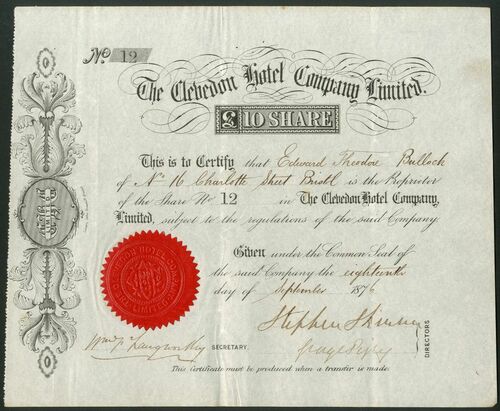 No. 12
The Clevedon Hotel Company Limited.
£10 SHARE
This is to Certify that Edward Theodore Bullock
of No 16 Charlotte Street Bristol is the Proprietor
of the Share No 12 in The Clevedon Hotel Company,
Limited, subject to the regulations of the said Company.
Given under the Common Seal of
the said Company the eighteenth
day of September 1876
Stephen
SECRETARY.
DIRECTORS
This Certificate must be produced when a transfer is made.